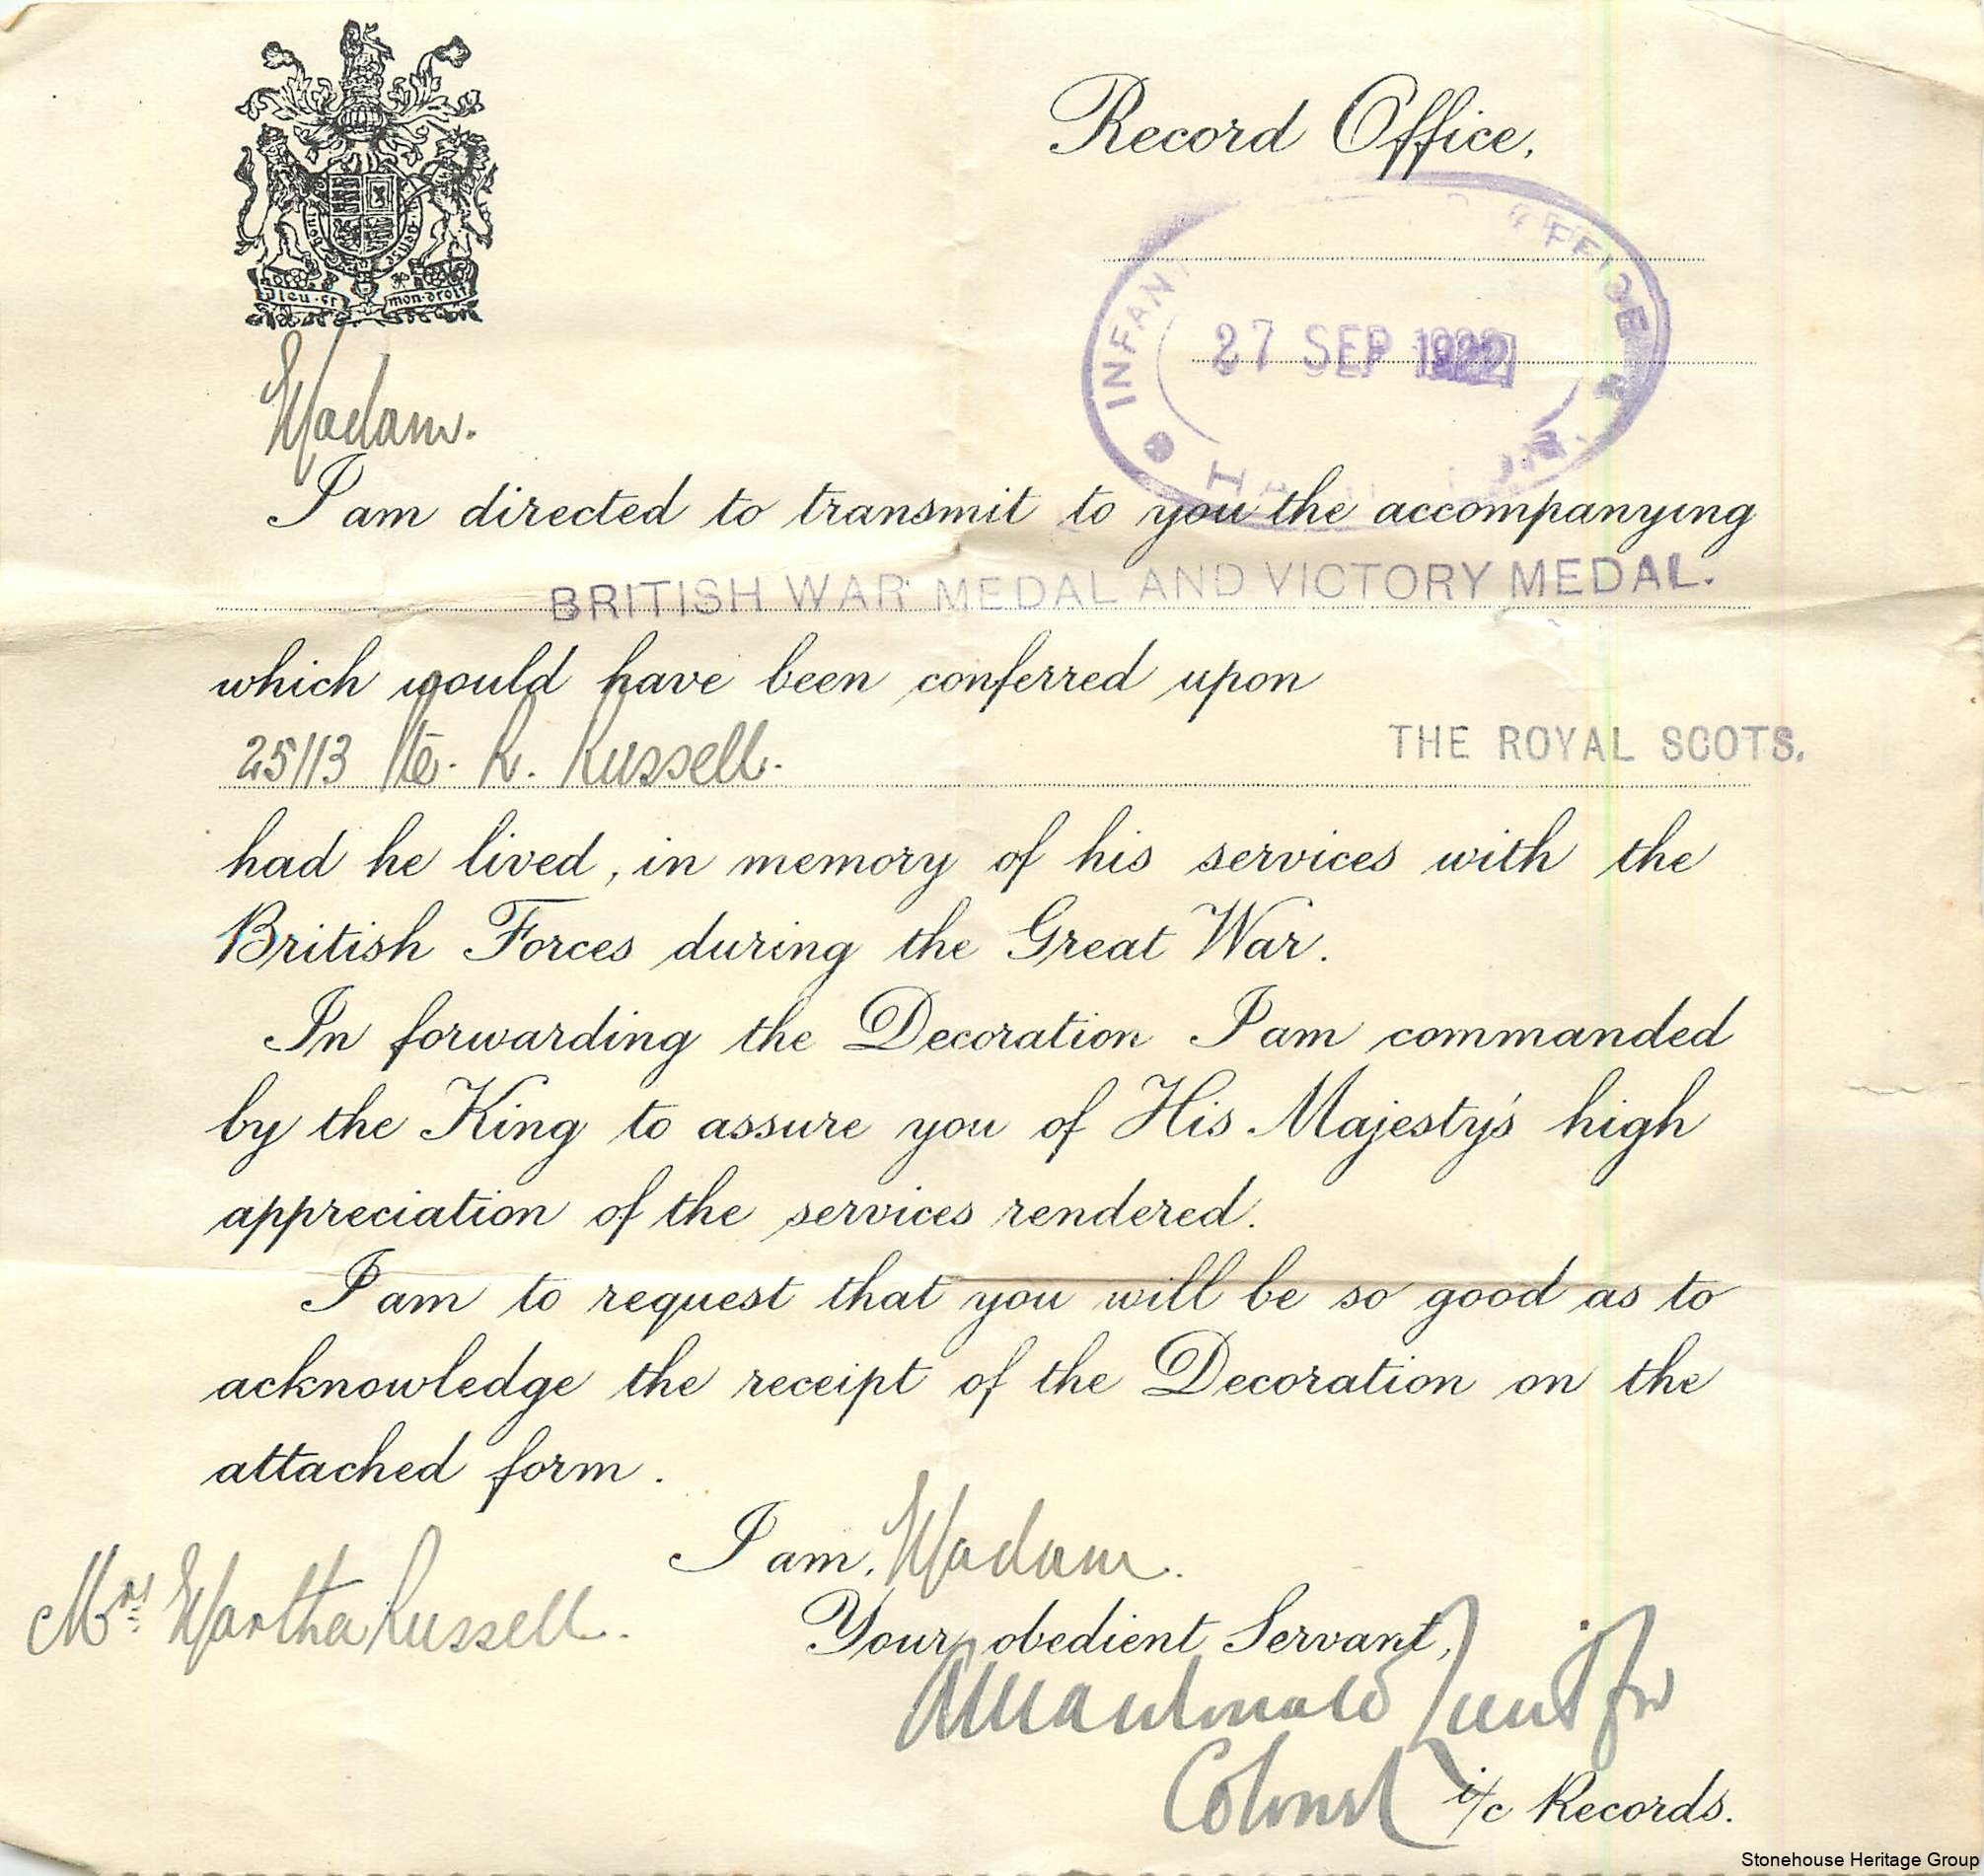 Dieu et mon droit
Record Office,
INFAN OFFICE
27 SEP 1922
Madam.
I am directed to transmit to you the accompanying
BRITISH WAR MEDAL AND VICTORY MEDAL.
which would have been conferred upon
25113 Pte. R. Russell. THE ROYAL SCOTS.
had he lived, in memory of his services with the
British Forces during the Great War.
In forwarding the Decoration I am commanded
by the King to assure you of His Majesty's high
appreciation of the services rendered.
I am to request that you will be so good as to
acknowledge the receipt of the Decoration on the
attached form.
I am, Madam.
Mrs Martha Russell.
Your obedient Servant,
Lieut for
Colonel i/c Records.
Stonehouse Heritage Group